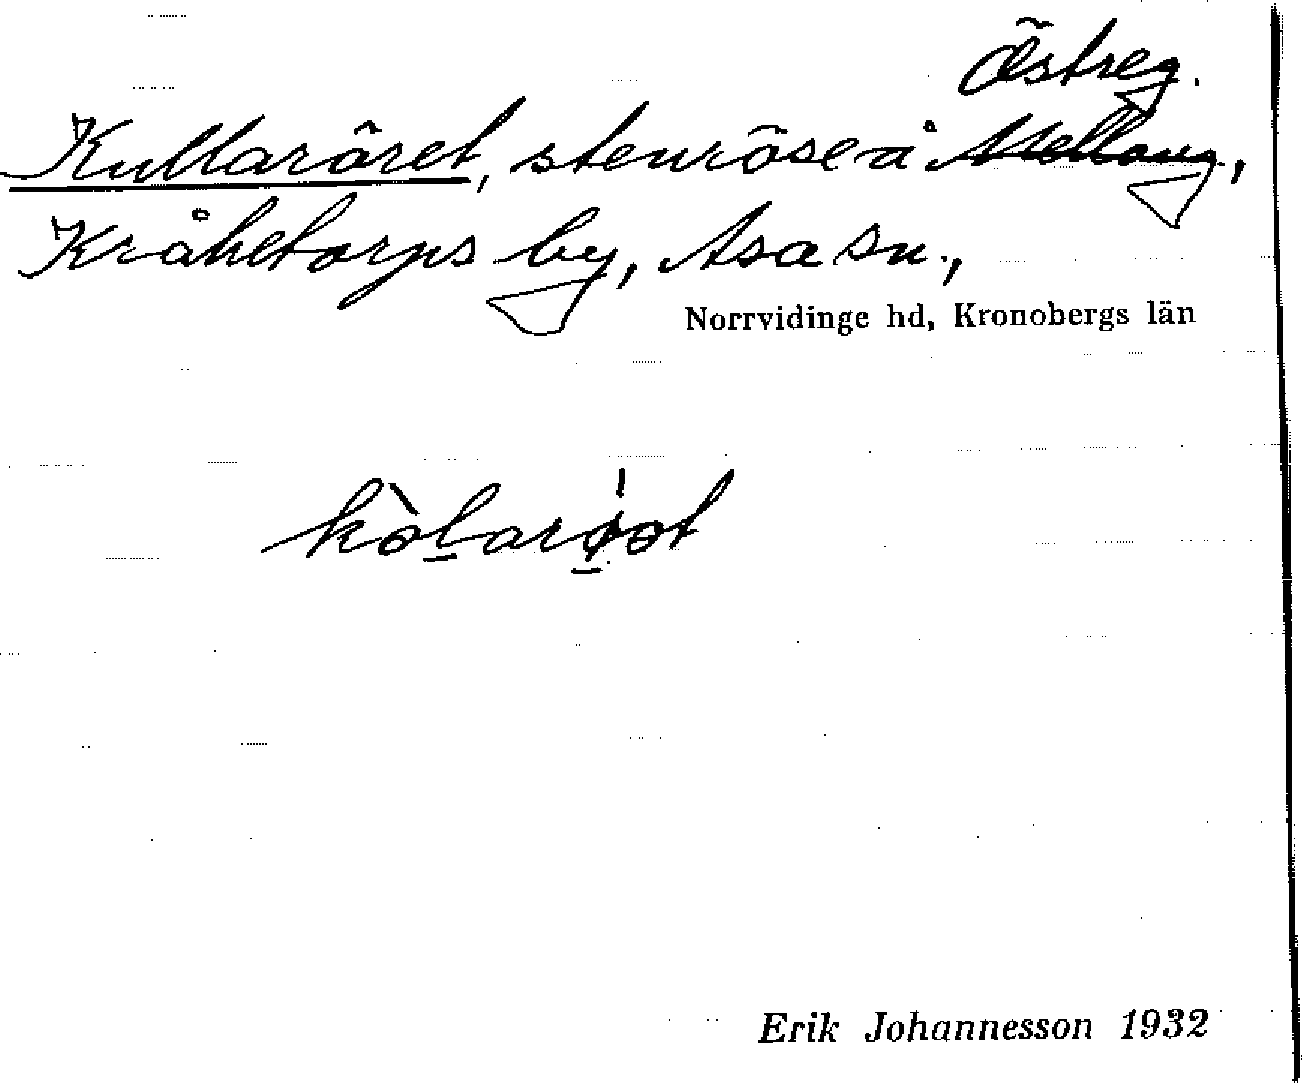 Östreg.
Kullaröret, stenröse å Mellang,
Kråketorps by, Asa sn.,
Norrvidinge hd, Kronobergs län
kòlarøət
Erik Johannesson 1932